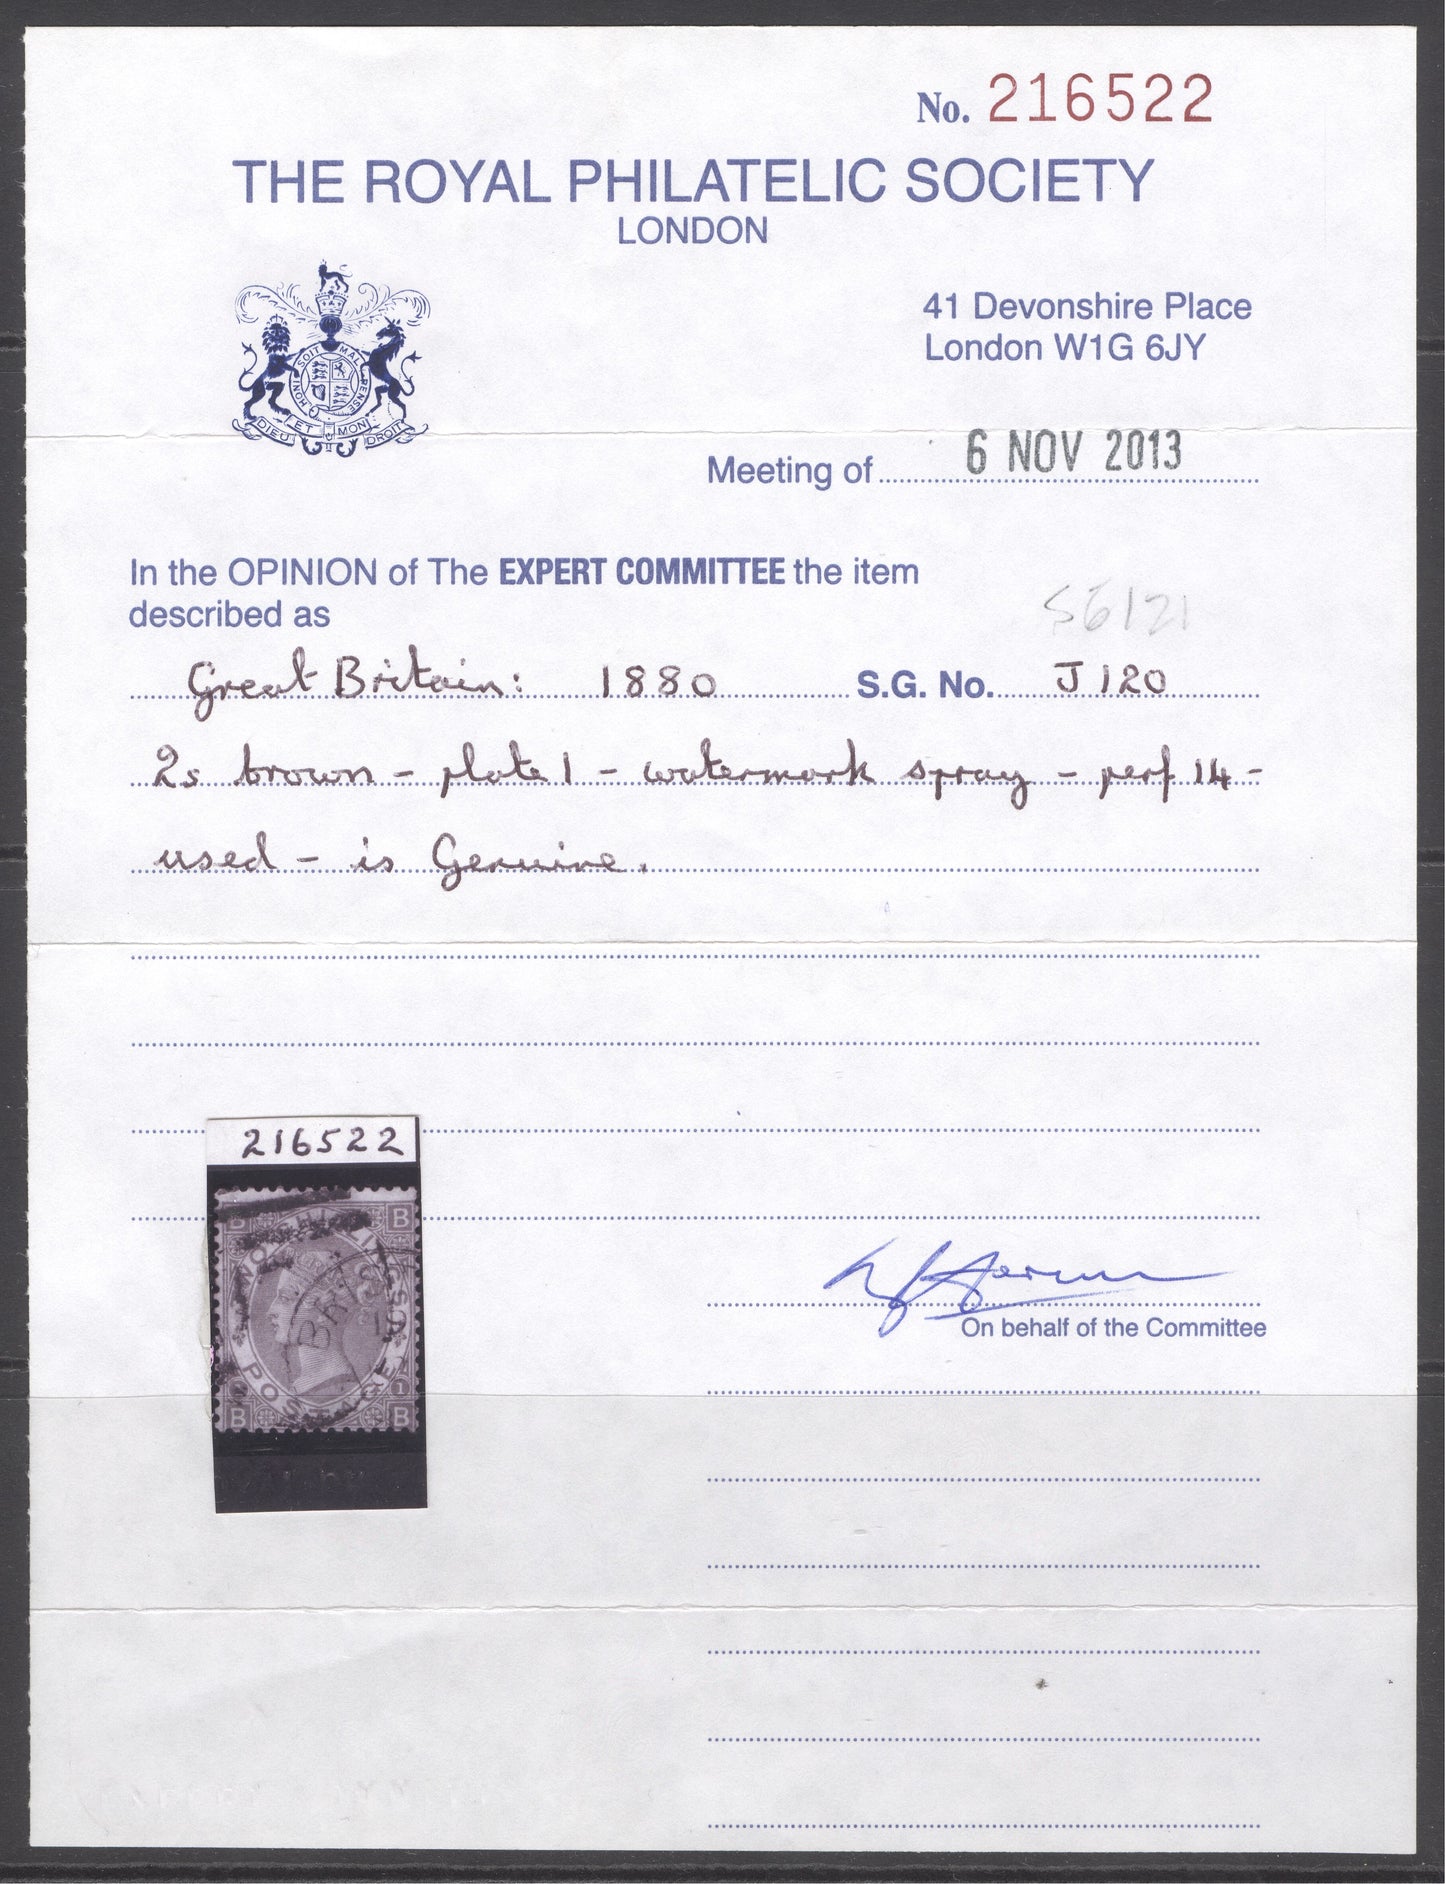 No. 216522
THE ROYAL PHILATELIC SOCIETY
LONDON
41 Devonshire Place
London W1G 6JY
HONI SOIT MAL PENSE
DIEU ET MON DROIT
Meeting of 6 NOV 2013
In the OPINION of The EXPERT COMMITTEE the item
described as
SG121
Great Britain: 1880 S.G. No. J120
2s brown - plate 1 - watermark spray - perf 14 -
used - is Genuine.
216522
B B
POSTAGE
1
B B
On behalf of the Committee